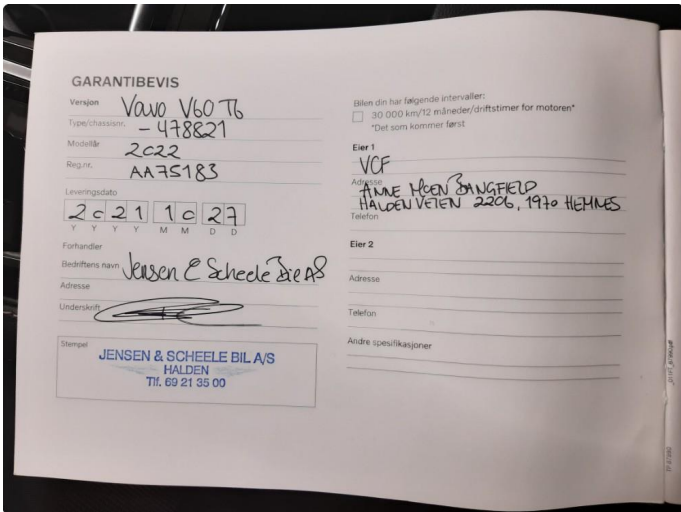 GARANTIBEVIS
Versjon Volvo V60 T6
Type/chassisnr. - 478821
Modellår 2022
Reg.nr. AA75183
Leveringsdato
2021 10 27
Y Y Y Y M M D D
Forhandler
Bedriftens navn Jensen & Scheele Bil AS
Adresse
Underskrift
Stempel
JENSEN & SCHEELE BIL A/S
HALDEN
Tlf. 69 21 35 00
Bilen din har følgende intervaller:
30 000 km/12 måneder/driftstimer for motoren*
*Det som kommer først
Eier 1
VCF
Adresse ANNE MOEN BANGFIELD
HALDENVEIEN 2206, 1970 HEMNES
Telefon
Eier 2
Adresse
Telefon
Andre spesifikasjoner